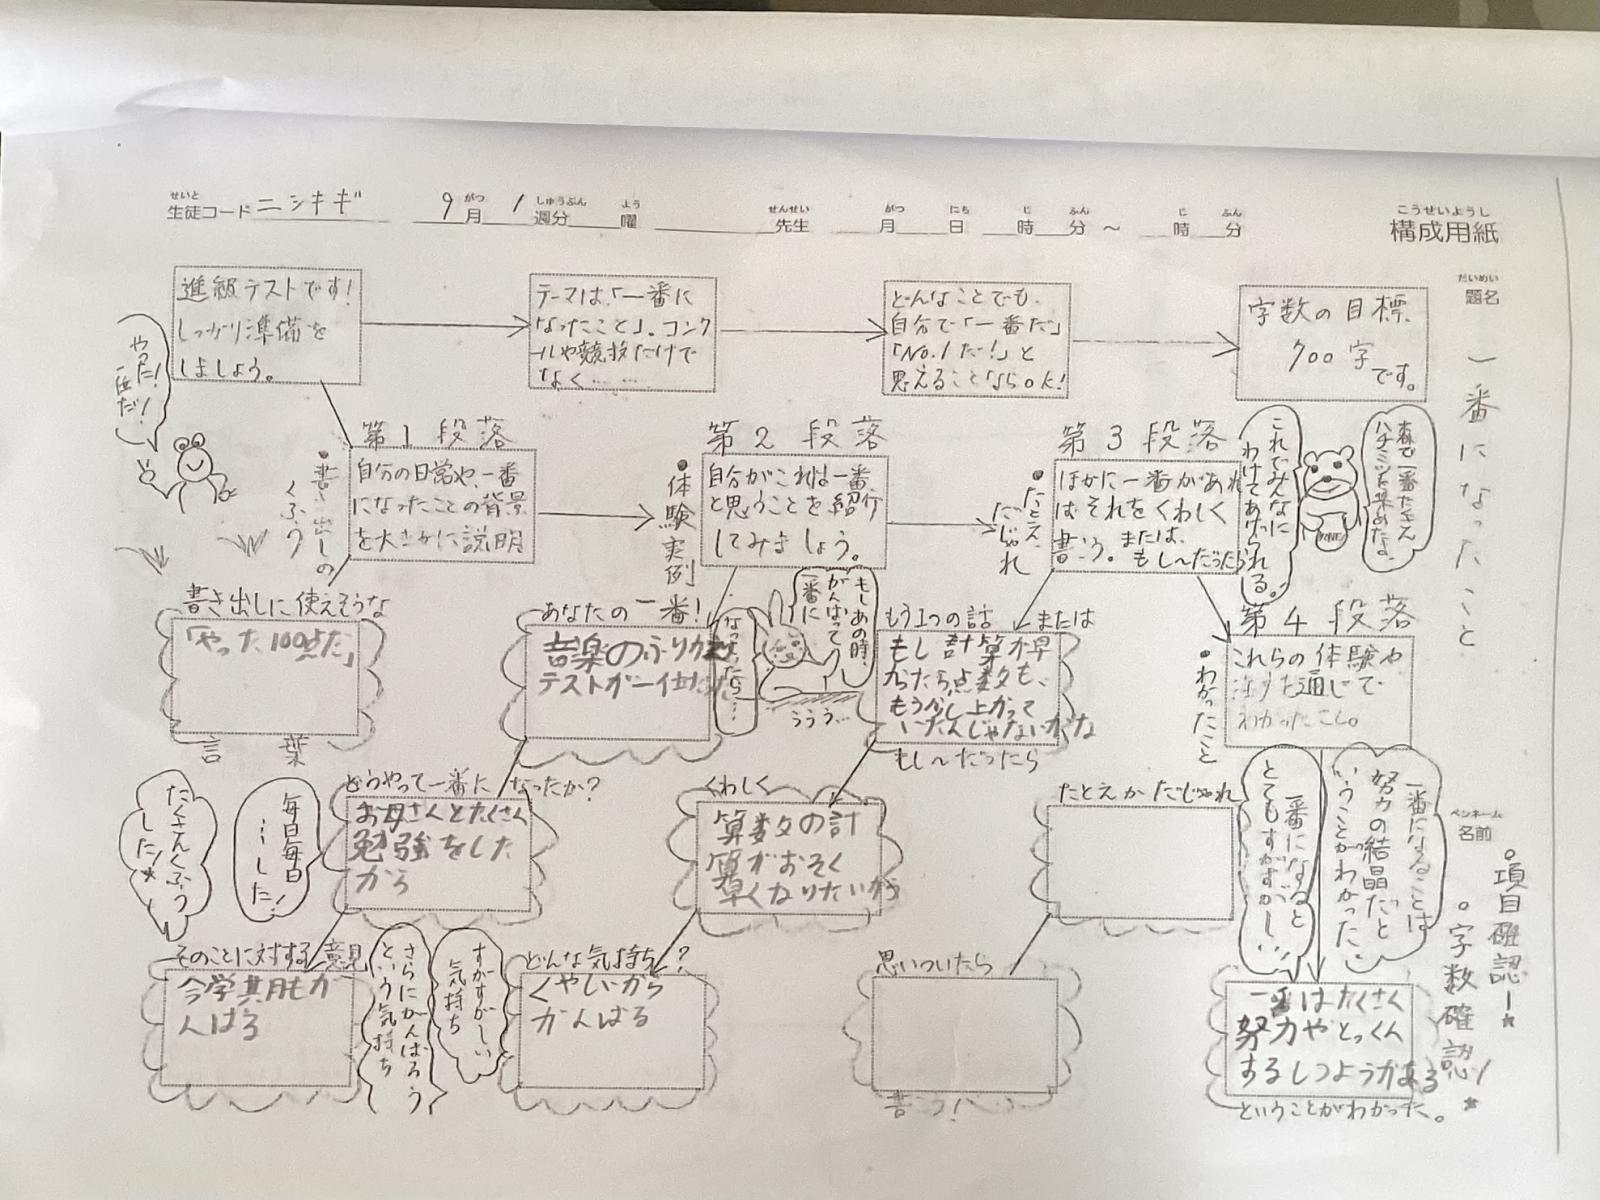 せいと
生徒コード ニシキギ
9 月 1 週分 曜
がつ しゅうぶん よう
せんせい
先生
がつ にち じ ふん じ ふん
月 日 時 分 〜 時 分
こうせいようし
構成用紙
だいめい
題名
一番になったこと
進級テストです!
しっかり準備を
しましょう。
テーマは、「一番に
なったこと」。コンク
ールや競技だけで
なく……
どんなことでも、
自分で「一番だ」
「No.1だ!」と
思えることならOK!
字数の目標
700字
です。
やった!
一位だ!
第1段落
・書き出しの
くふう
自分の日常や、一番
になったことの背景
を大まかに説明
第2段落
・体験実例
自分がこれは一番
と思うことを紹介
してみましょう。
第3段落
・たとえ、
だじゃれ
ほかに一番があれ
ばそれをくわしく
書こう。または、
もし〜だったら
これでみんなに
わけてあげられる。
森で一番たくさん
ハチミツを集めたよ
書き出しに使えそうな
「やった100点だ」
言葉
あなたの一番!
音楽のふりかえり
テストが一位だった
もしあの時、
がんばって
一番に
なっていたら…
ううう…
もう1つの話 または
もし計算が早
かったら点数も、
もう少し上がって
いたんじゃないかな
もし〜だったら
第4段落
・わかったこと
これらの体験や
を通じて
わかったこと。
たくさんくふう
した!
毎日毎日
…した!
どうやって一番になったか?
お母さんとたくさん
勉強をした
から
くわしく
算数の計
算がおそく
早くなりたいから
たとえかだじゃれ
一番になると
とてもすがすがしい
一番になることは
努力の結晶だと
いうことがわかった
ペンネーム
名前
・項目確認!
・字数確認!
そのことに対する意見
今学期もが
んばる
さらにがんばろう
という気持ち
すがすがしい
気持ち
どんな気持ち?
くやしいから
がんばる
思いついたら
書こう!
一番はたくさん
努力やとっくん
するしつようがある
ということがわかった。